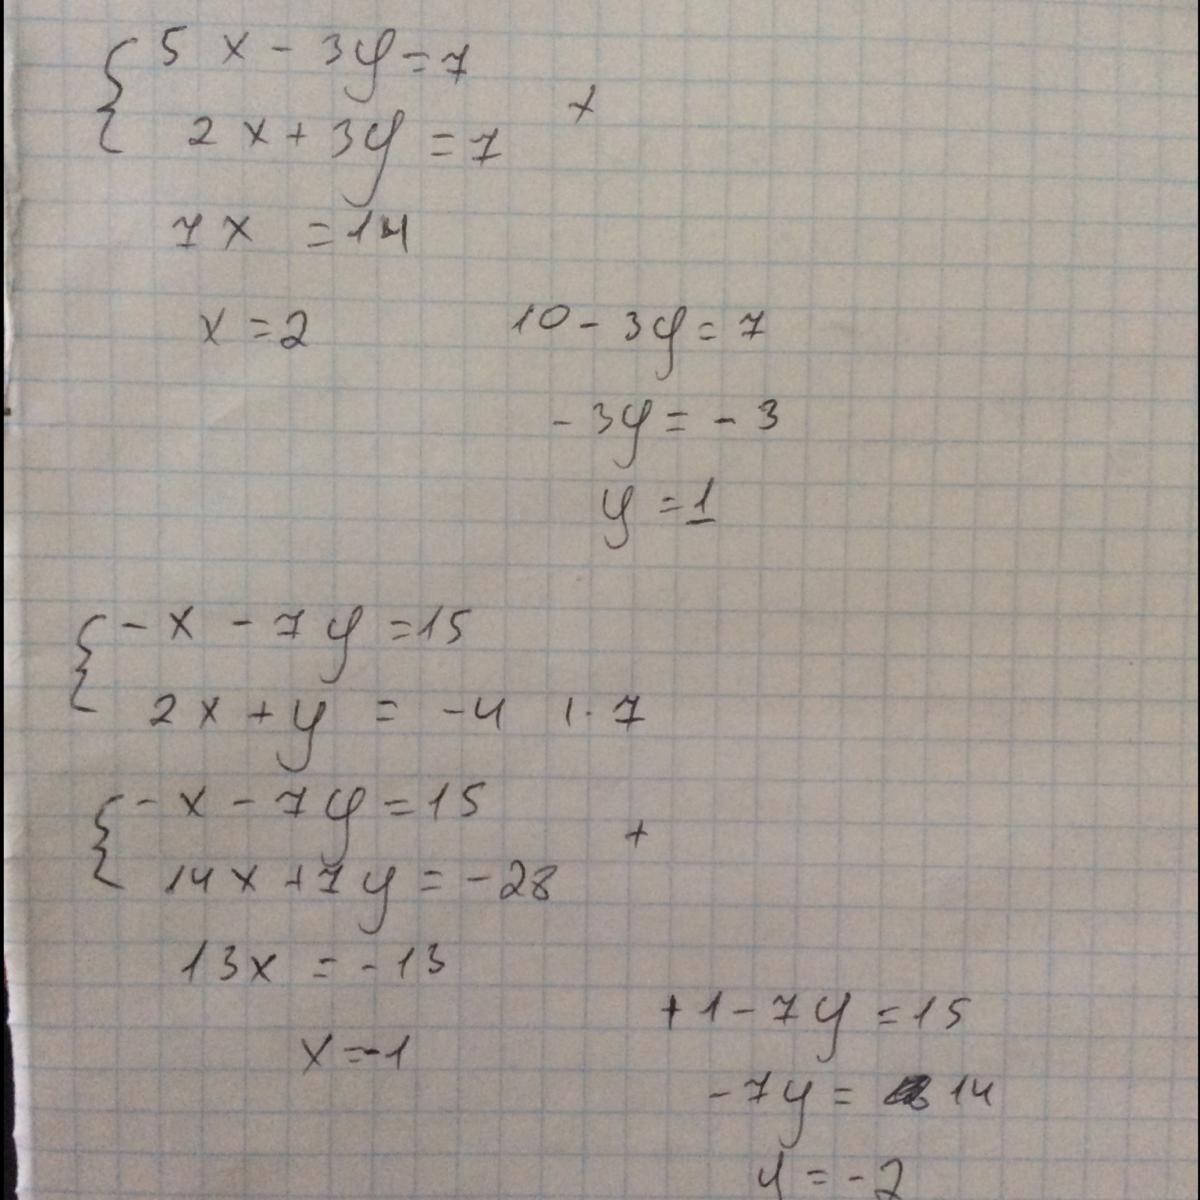 { 5x - 3y = 7
2x + 3y = 7 +
7x = 14
x = 2
10 - 3y = 7
-3y = -3
y = 1
{ -x - 7y = 15
2x + y = -4 | · 7
{ -x - 7y = 15
14x + 7y = -28 +
13x = -13
x = -1
+1 - 7y = 15
-7y = 14
y = -2